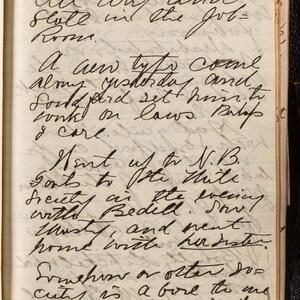 All day
Slott in the Job-
Room.
A new typo came
along yesterday and
Sandford set him to
work on laws. Perhaps
I care.
Went up to N.B
to the Mite
Society in the evening
with Bedell. Saw
and went
home with her sister.
Somehow or other So-
ciety is a bore to me